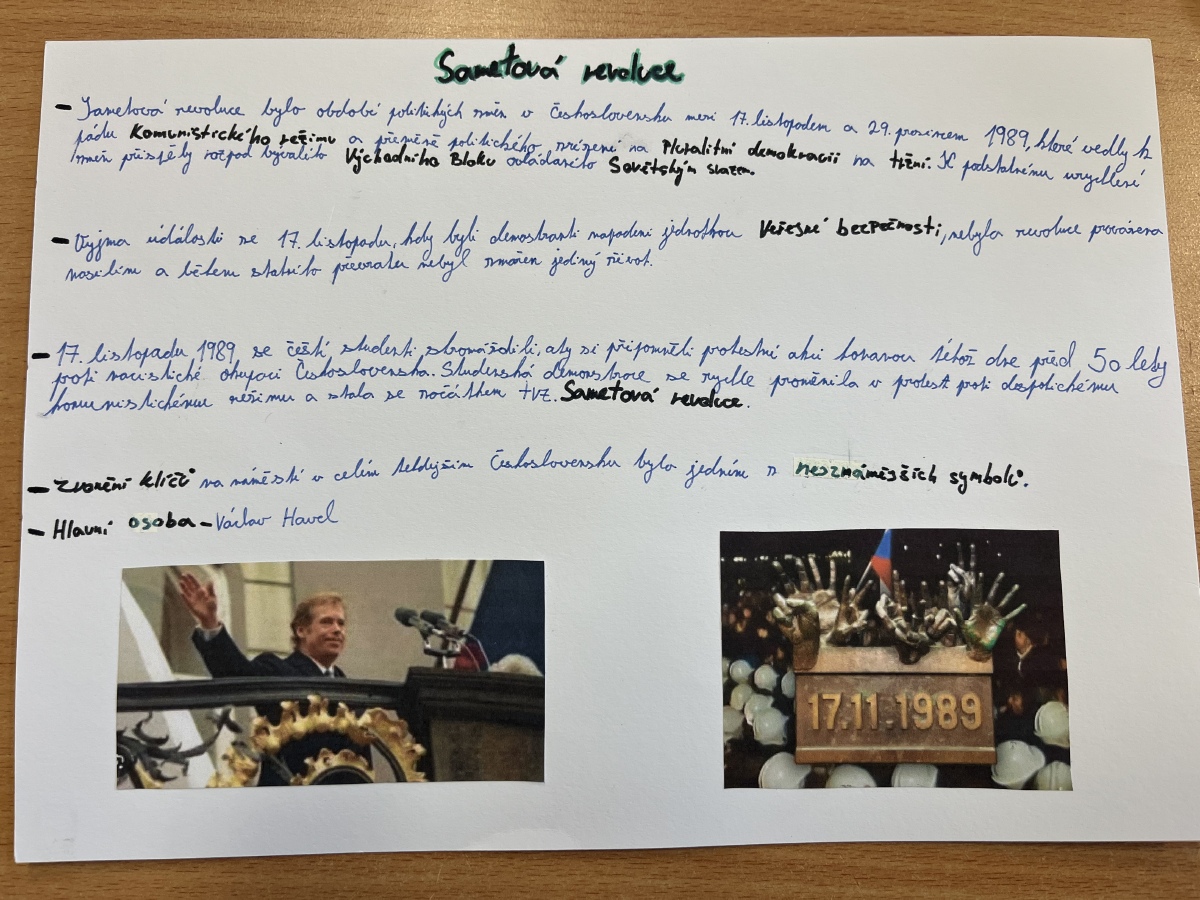 Sametová revoluce
- Sametová revoluce bylo období politických změn v Československu mezi 17. listopadem a 29. prosincem 1989, které vedly k
pádu Komunistického režimu a přeměně politického zřízení na Pluralitní demokracii na tržní. K podstatnému urychlení
změn přispěly rozpad bývalého Východního Bloku ovládaného Sovětským svazem.
- Vyjma události ze 17. listopadu, kdy byli demostranti napadeni jednotkou Veřejné bezpečnosti, nebyla revoluce provázena
násilím a během státního převratu nebyl zmařen jediný život.
- 17. listopadu 1989 se čeští studenti shromáždili, aby si připomněli protestní akci konanou téhož dne před 50 lety
proti nacistické okupaci Československa. Studenská demonstrace se rychle proměnila v protest proti despotickému
komunistickému režimu a stala se počátkem tvz. Sametová revoluce.
- Zvonění klíčů na náměstí v celém tehdejším Československu bylo jedním z nejznámějších symbolů.
- Hlavní osoba - Václav Havel
17.11.1989